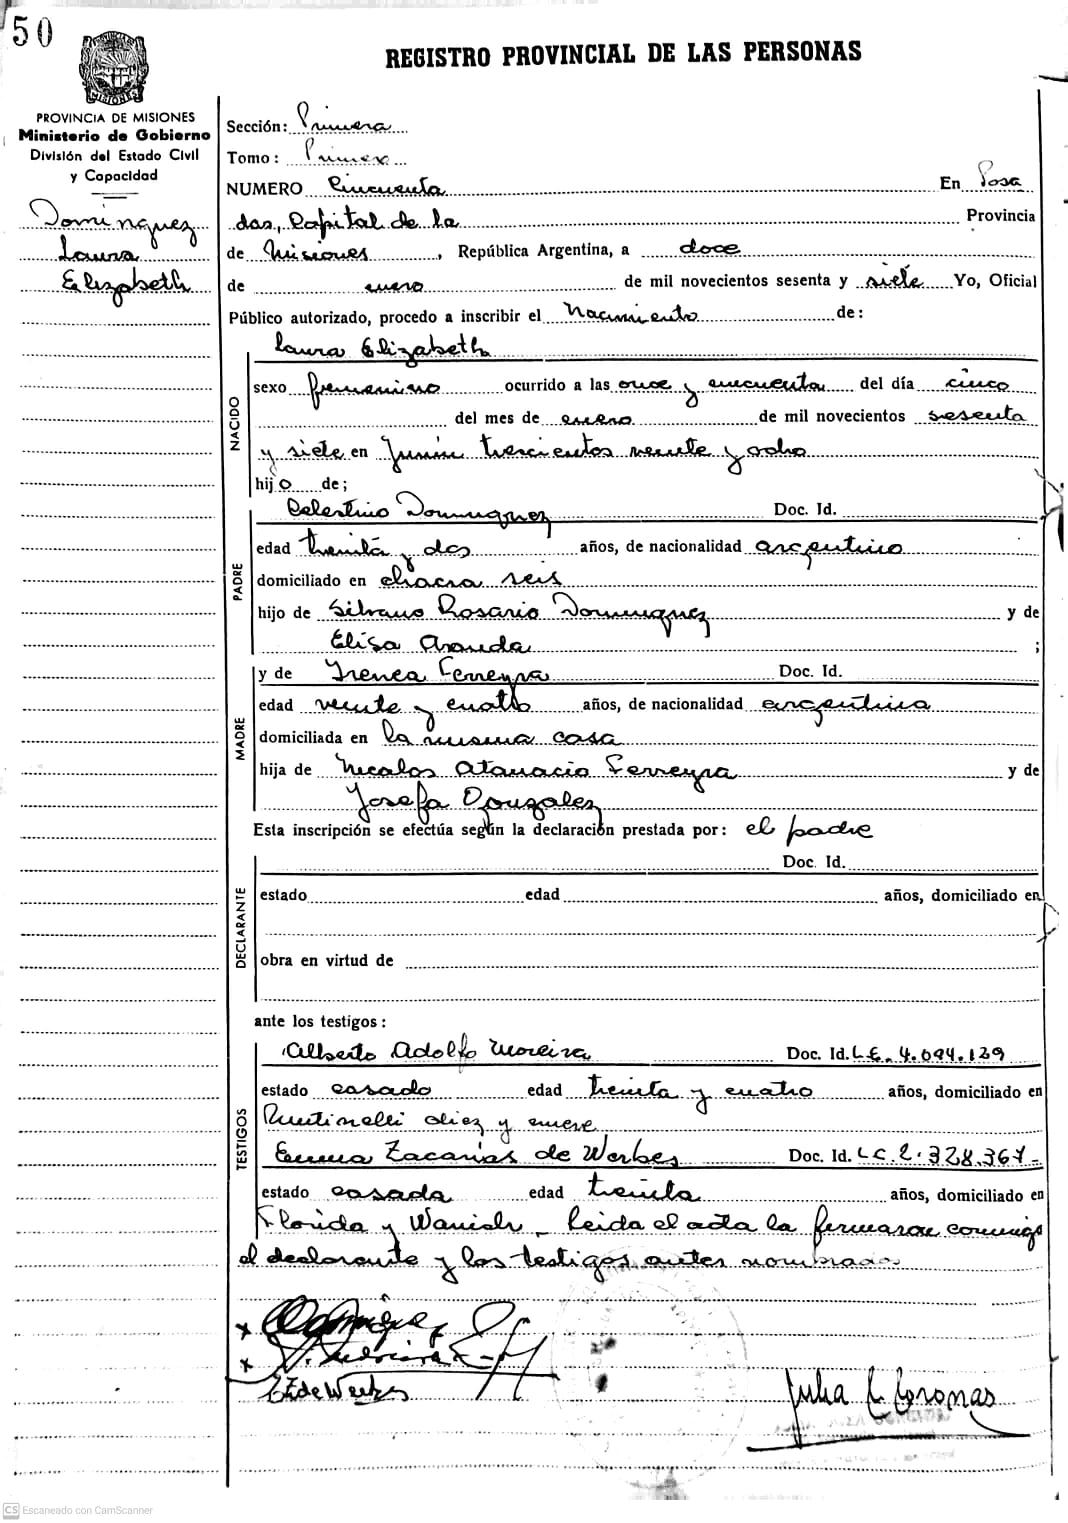 50
REGISTRO PROVINCIAL DE LAS PERSONAS
MISIONES
PROVINCIA DE MISIONES
Ministerio de Gobierno
División del Estado Civil
y Capacidad
Dominguez
Laura
Elizabeth
Sección: Primera
Tomo: Primero
NUMERO Cincuenta En Posa
das, Capital de la Provincia
de Misiones, República Argentina, a doce
de enero de mil novecientos sesenta y siete Yo, Oficial
Público autorizado, procedo a inscribir el Nacimiento de:
NACIDO
Laura Elizabeth
sexo femenino ocurrido a las once y cincuenta del día cinco
del mes de enero de mil novecientos sesenta
y siete en Junín trescientos veinte y ocho
hijo de;
PADRE
Celestino Dominguez Doc. Id.
edad treinta y dos años, de nacionalidad argentino
domiciliado en chacra seis
hijo de Silvano Rosario Dominguez y de
Elisa Aranda ;
MADRE
y de Irenea Ferreyra Doc. Id.
edad veinte y cuatro años, de nacionalidad argentina
domiciliada en la misma casa
hija de Nicolas Atanacio Ferreyra y de
Josefa Gonzalez
Esta inscripción se efectúa según la declaración prestada por: el padre
DECLARANTE
Doc. Id.
estado edad años, domiciliado en
obra en virtud de
ante los testigos:
TESTIGOS
Alberto Adolfo Moreira Doc. Id. L.E. 4.094.129
estado casado edad treinta y cuatro años, domiciliado en
diez y nueve
Emma Zacarias de Werbes Doc. Id. L.C. 2.328.367-
estado casada edad treinta años, domiciliado en
Florida y Leida el acta la firmaron conmigo
el declarante y los testigos antes nombrados
Julia Coronas
CS Escaneado con CamScanner